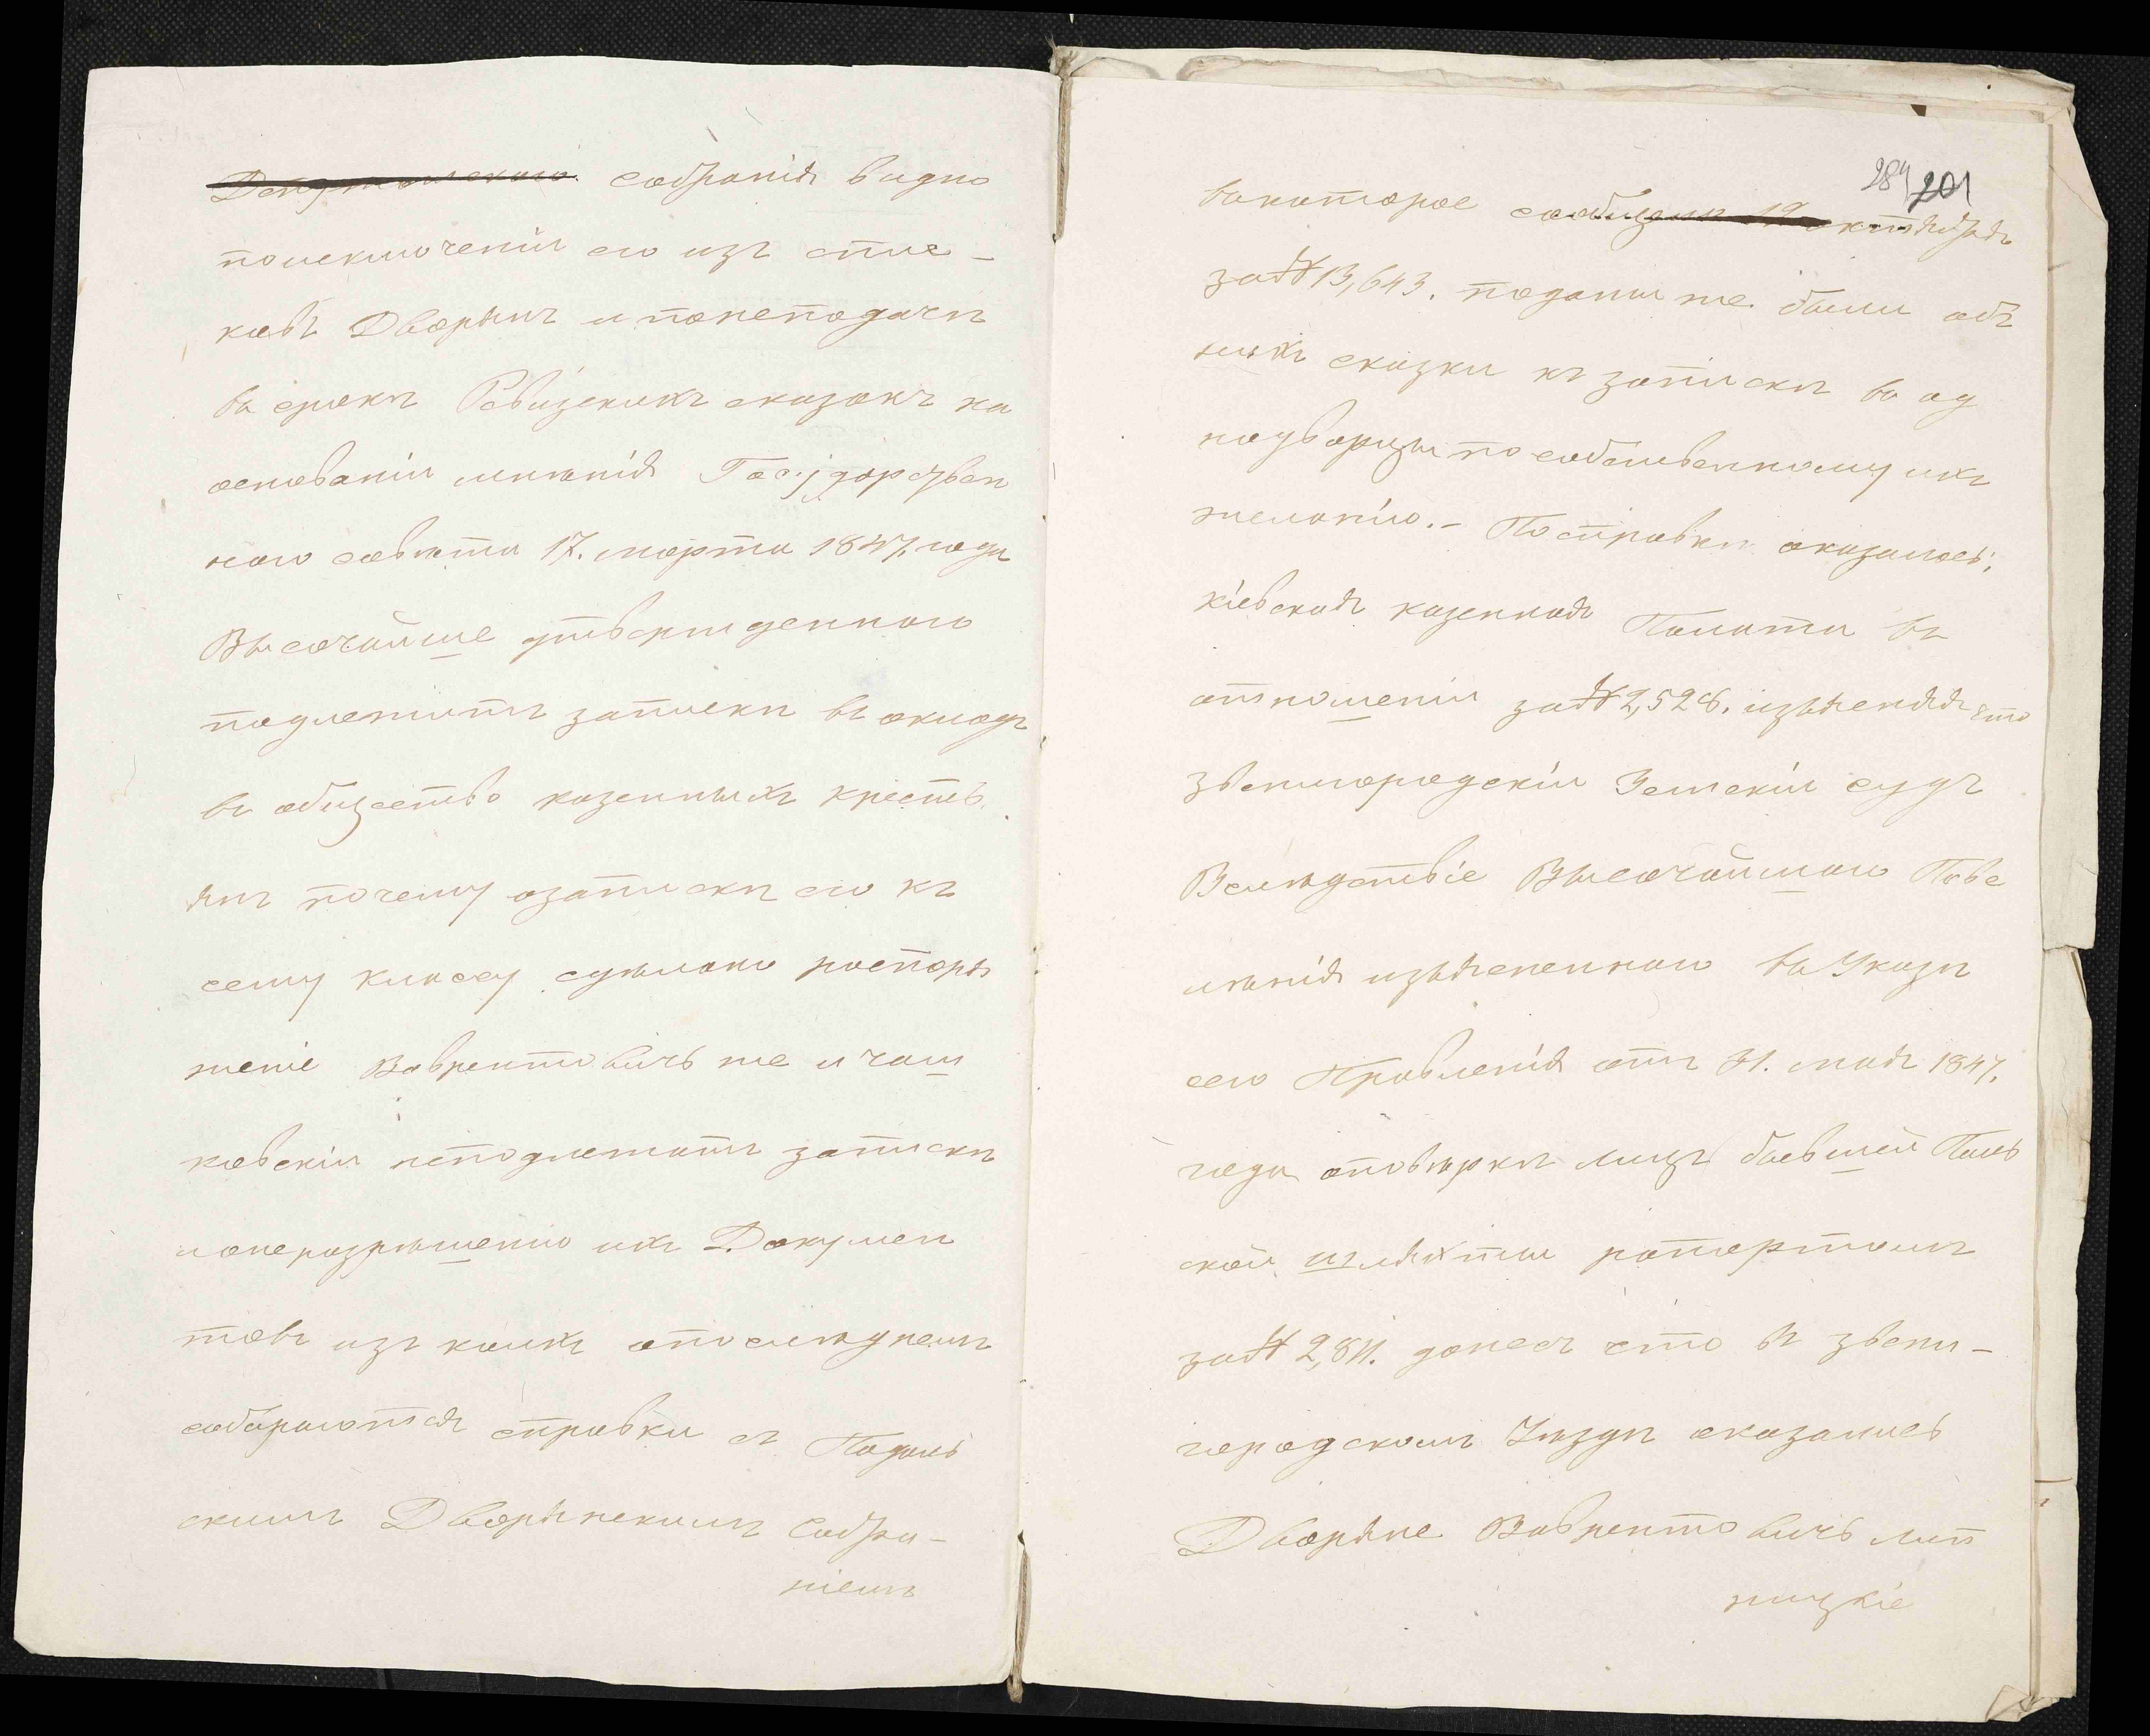 Депутатского собранія видно
поисключеніи его изъ спис-
ковъ Дворянъ и понеподачѣ
въ срокъ Ревизскихъ сказокъ на
основаніи мнѣнія Государствен
ного совѣта 17. марта 1847. года
Высочайше утвержденного
подлежитъ запискѣ въ окладъ
въ общество казенныхъ кресть
янъ почему озапискѣ его къ
сему классу сдѣлано распоря
женіе Вавრентовичъ же и чаш
ковскіи неподлежатъ запискѣ
поперазрѣшенію ихъ Докумен
товъ изъ коихъ опослѣднемъ
собираются справки съ Подоль
скимъ Дворянскимъ Собра-
ніемъ
284 201
вакоторое сообщено 19 октября
за№ 13,643. поданы же были объ
нихъ сказки къ запискѣ въ од
нодворцы пособственному ихъ
желанію.- Посправкѣ оказалось:
кіевская казенная Палата въ
отношеніи за№ 2,528. изъясняя что
звенигородскій Земскіи судъ
Вслѣдствіе Высочайшаго Пове
лѣнія изъясненного въ Указѣ
сего Правленія отъ 31. мая 1847.
года оповѣркѣ лицъ бывшей Поль
ской шляхты рапортомъ
за№ 2,811. донесъ что въ звени-
городскомъ Уѣздѣ оказались
Дворяне Ваврентовичъ лип
ницкіе